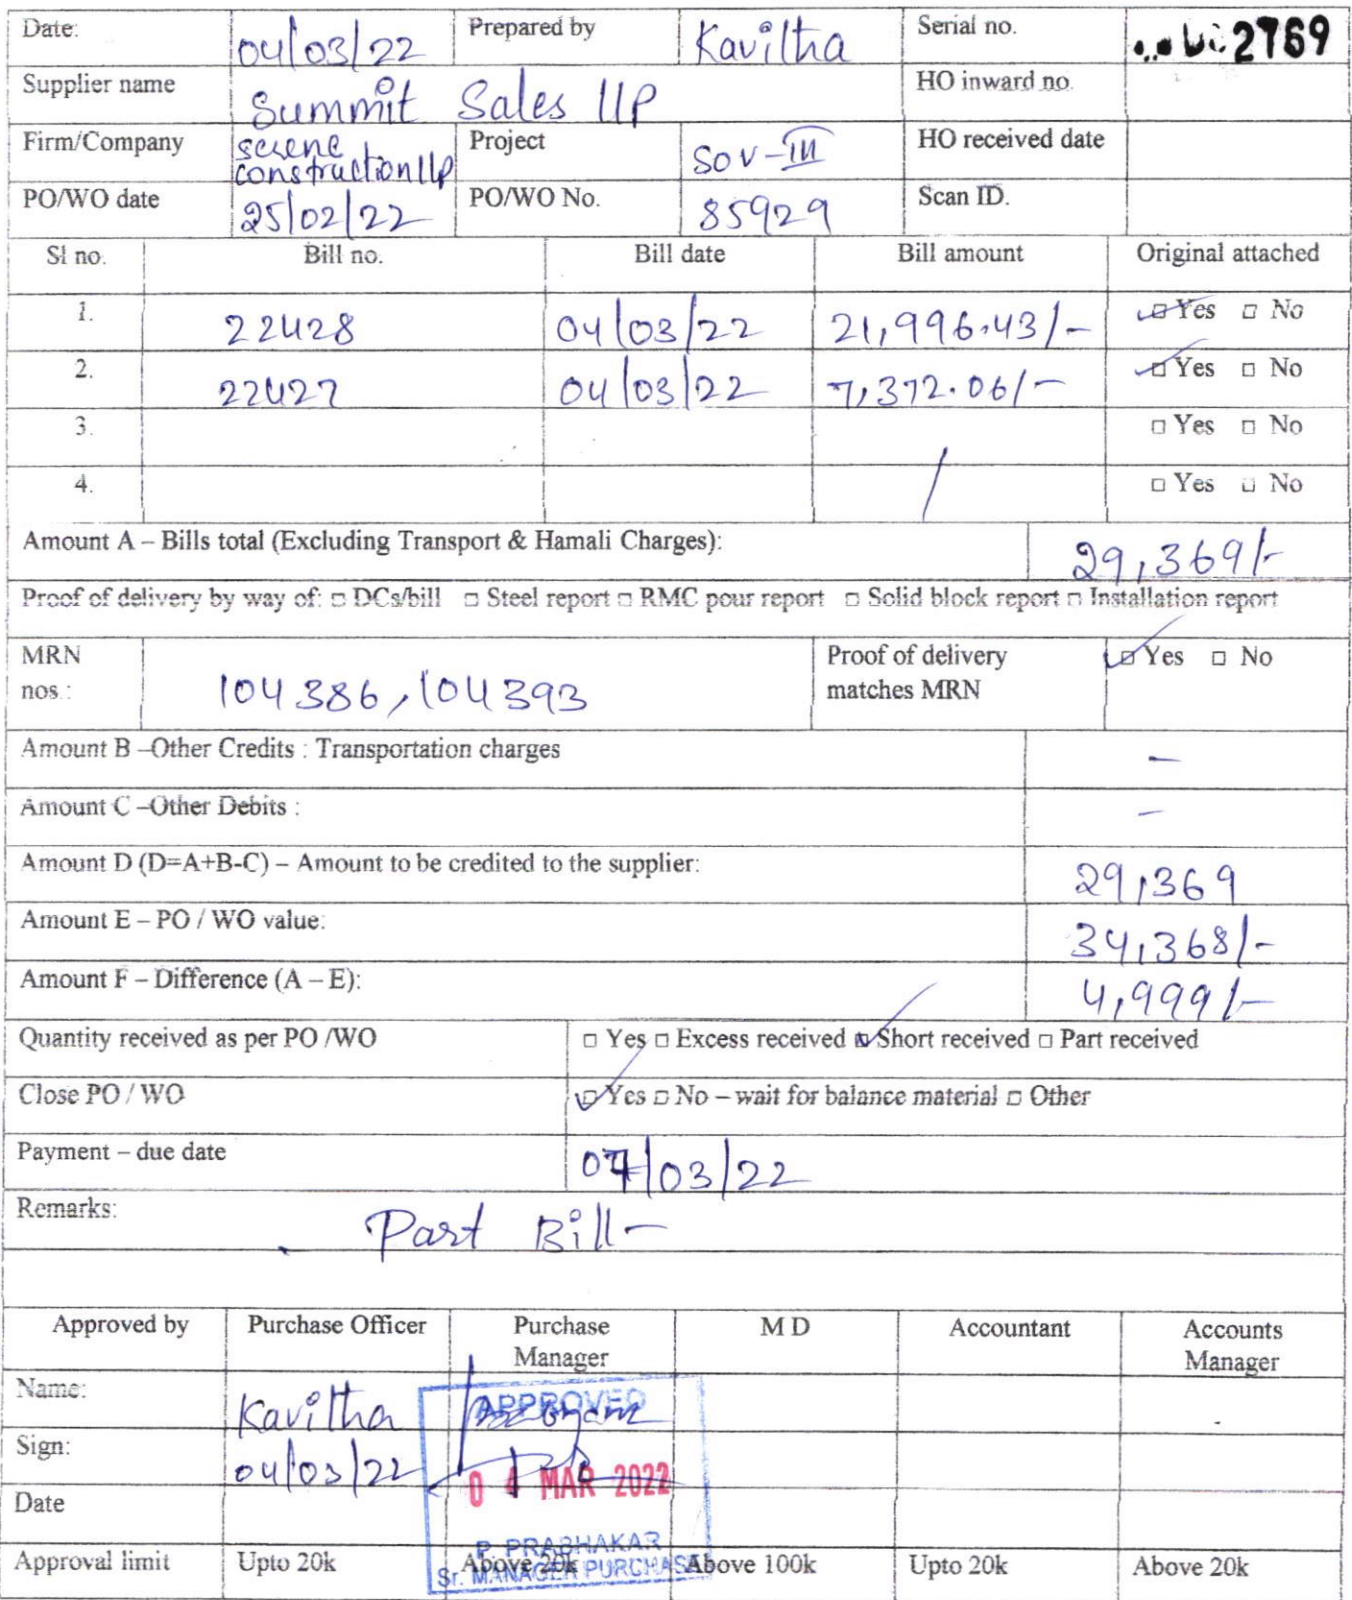 Date: 04/03/22 Prepared by Kavitha Serial no. 2769
Supplier name Summit Sales llp HO inward no.
Firm/Company serene construction llp Project SOV-III HO received date
PO/WO date 25/02/22 PO/WO No. 85929 Scan ID.
Sl no. Bill no. Bill date Bill amount Original attached
1. 22428 04/03/22 21,996.43/- ☑ Yes □ No
2. 22427 04/03/22 7,372.06/- ☑ Yes □ No
3. □ Yes □ No
4. □ Yes □ No
Amount A – Bills total (Excluding Transport & Hamali Charges): 29,369/-
Proof of delivery by way of: □ DCs/bill □ Steel report □ RMC pour report □ Solid block report □ Installation report
MRN nos.: 104386, 104393 Proof of delivery matches MRN ☑ Yes □ No
Amount B –Other Credits : Transportation charges –
Amount C –Other Debits : –
Amount D (D=A+B-C) – Amount to be credited to the supplier: 29,369
Amount E – PO / WO value: 34,368/-
Amount F – Difference (A – E): 4,999/-
Quantity received as per PO /WO □ Yes □ Excess received ☑ Short received □ Part received
Close PO / WO ☑ Yes □ No – wait for balance material □ Other
Payment – due date 07/03/22
Remarks: Part Bill-
Approved by Purchase Officer Purchase Manager M D Accountant Accounts Manager
Name: Kavitha APPROVED
Sign: 04/03/22 04 MAR 2022
Date
P. PRABHAKAR
Sr. MANAGER PURCHASE
Approval limit Upto 20k Above 20k Above 100k Upto 20k Above 20k